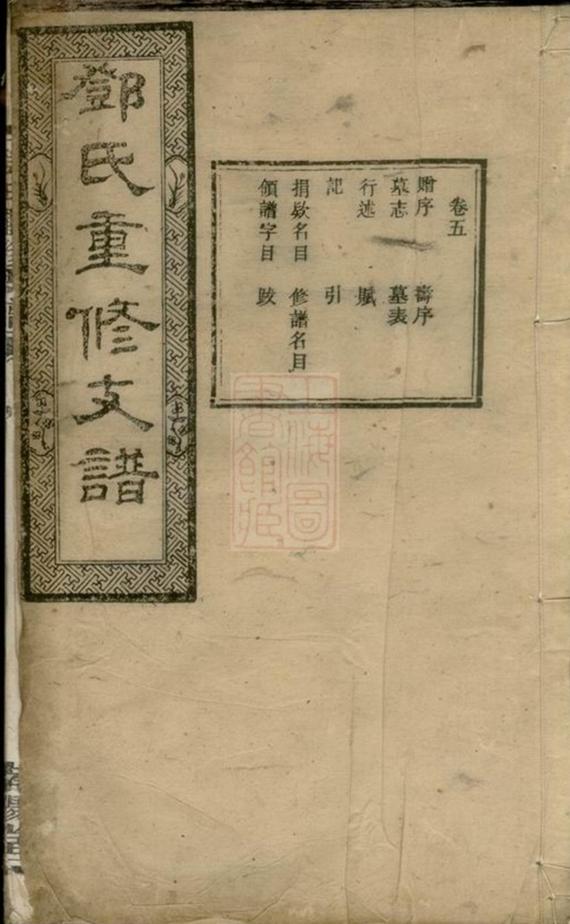 鄧氏重修支譜
卷五
贈序　壽序
墓志　墓表
行述　賦
記　引
捐欵名目　修譜名目
領譜字目　跋
上海圖書館藏